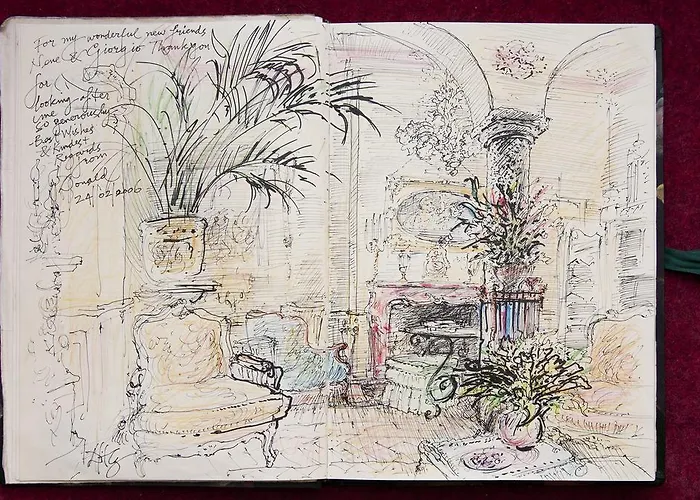 For my wonderful new friends
& Giorgio Thankyou
for
looking after
me
so generously
Best Wishes
& Kindest
Regards
from
Donald
24 02 2006